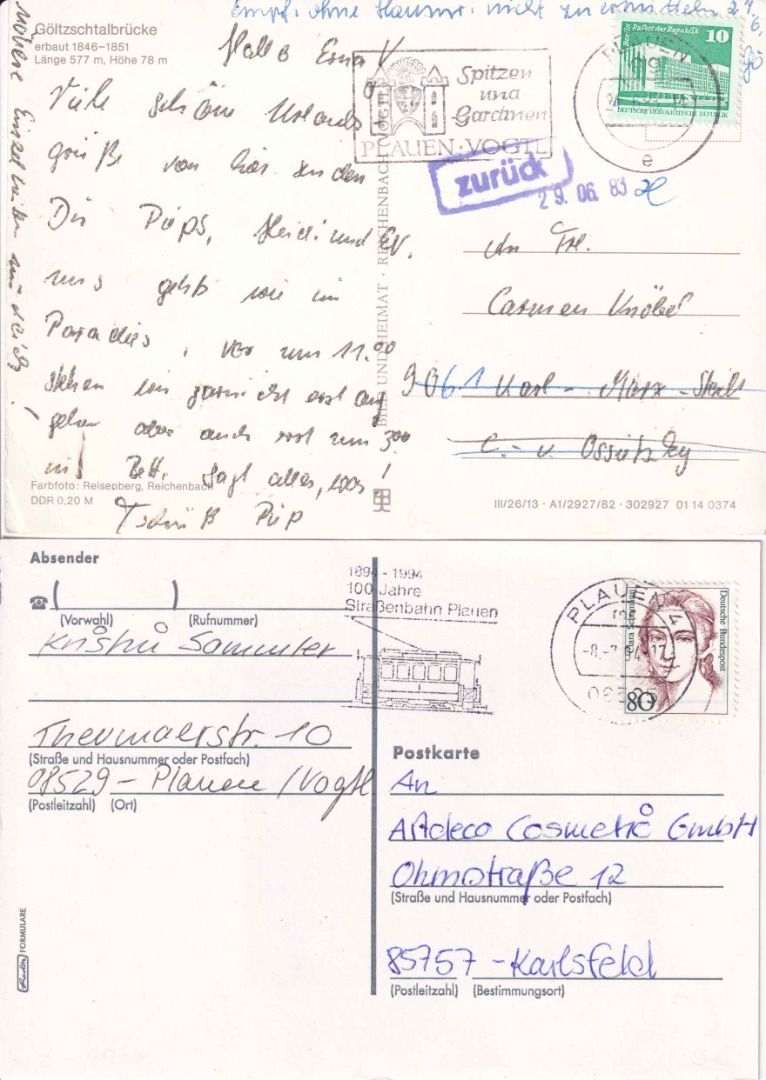 Empf. ohne Hausnr. nicht zu ermitteln
Göltzschtalbrücke
erbaut 1846–1851
Länge 577 m, Höhe 78 m
Hallo
Viele schöne Urlaubs
grüße von hier senden
Dir Püps, Heidi und
uns geht's wie im
Paradies, vor um 11.00
stehen wir garnicht erst auf
gehen aber auch erst um 3.00
ins Bett. Sagt alles, was!
Tschüß Püp
Farbfoto: Reisenberg, Reichenbach
DDR 0,20 M
BILD UND HEIMAT · REICHENBACH (VOGTL
Spitzen
und
Gardinen
PLAUEN · VOGTL
PLAUEN
e
Berlin Palast der Republik
10
DEUTSCHE DEMOKRATISCHE REPUBLIK
zurück
29. 06. 83
An Frl.
Carmen Knöbel
9061 Karl-Marx-Stadt
C.-v. Ossietzky
III/26/13 · A1/2927/82 · 302927 01 14 0374
Absender
(Vorwahl) (Rufnummer)
Kristin Sammler
Theumaerstr. 10
(Straße und Hausnummer oder Postfach)
08529 – Plauen /Vogtl
(Postleitzahl) (Ort)
FORMULARE
1894 - 1994
100 Jahre
Straßenbahn Plauen
PLAUEN
Clara Schumann
Deutsche Bundespost
80
Postkarte
An
Artdeco Cosmetic GmbH
Ohmstraße 12
(Straße und Hausnummer oder Postfach)
85757 – Karlsfeld
(Postleitzahl) (Bestimmungsort)